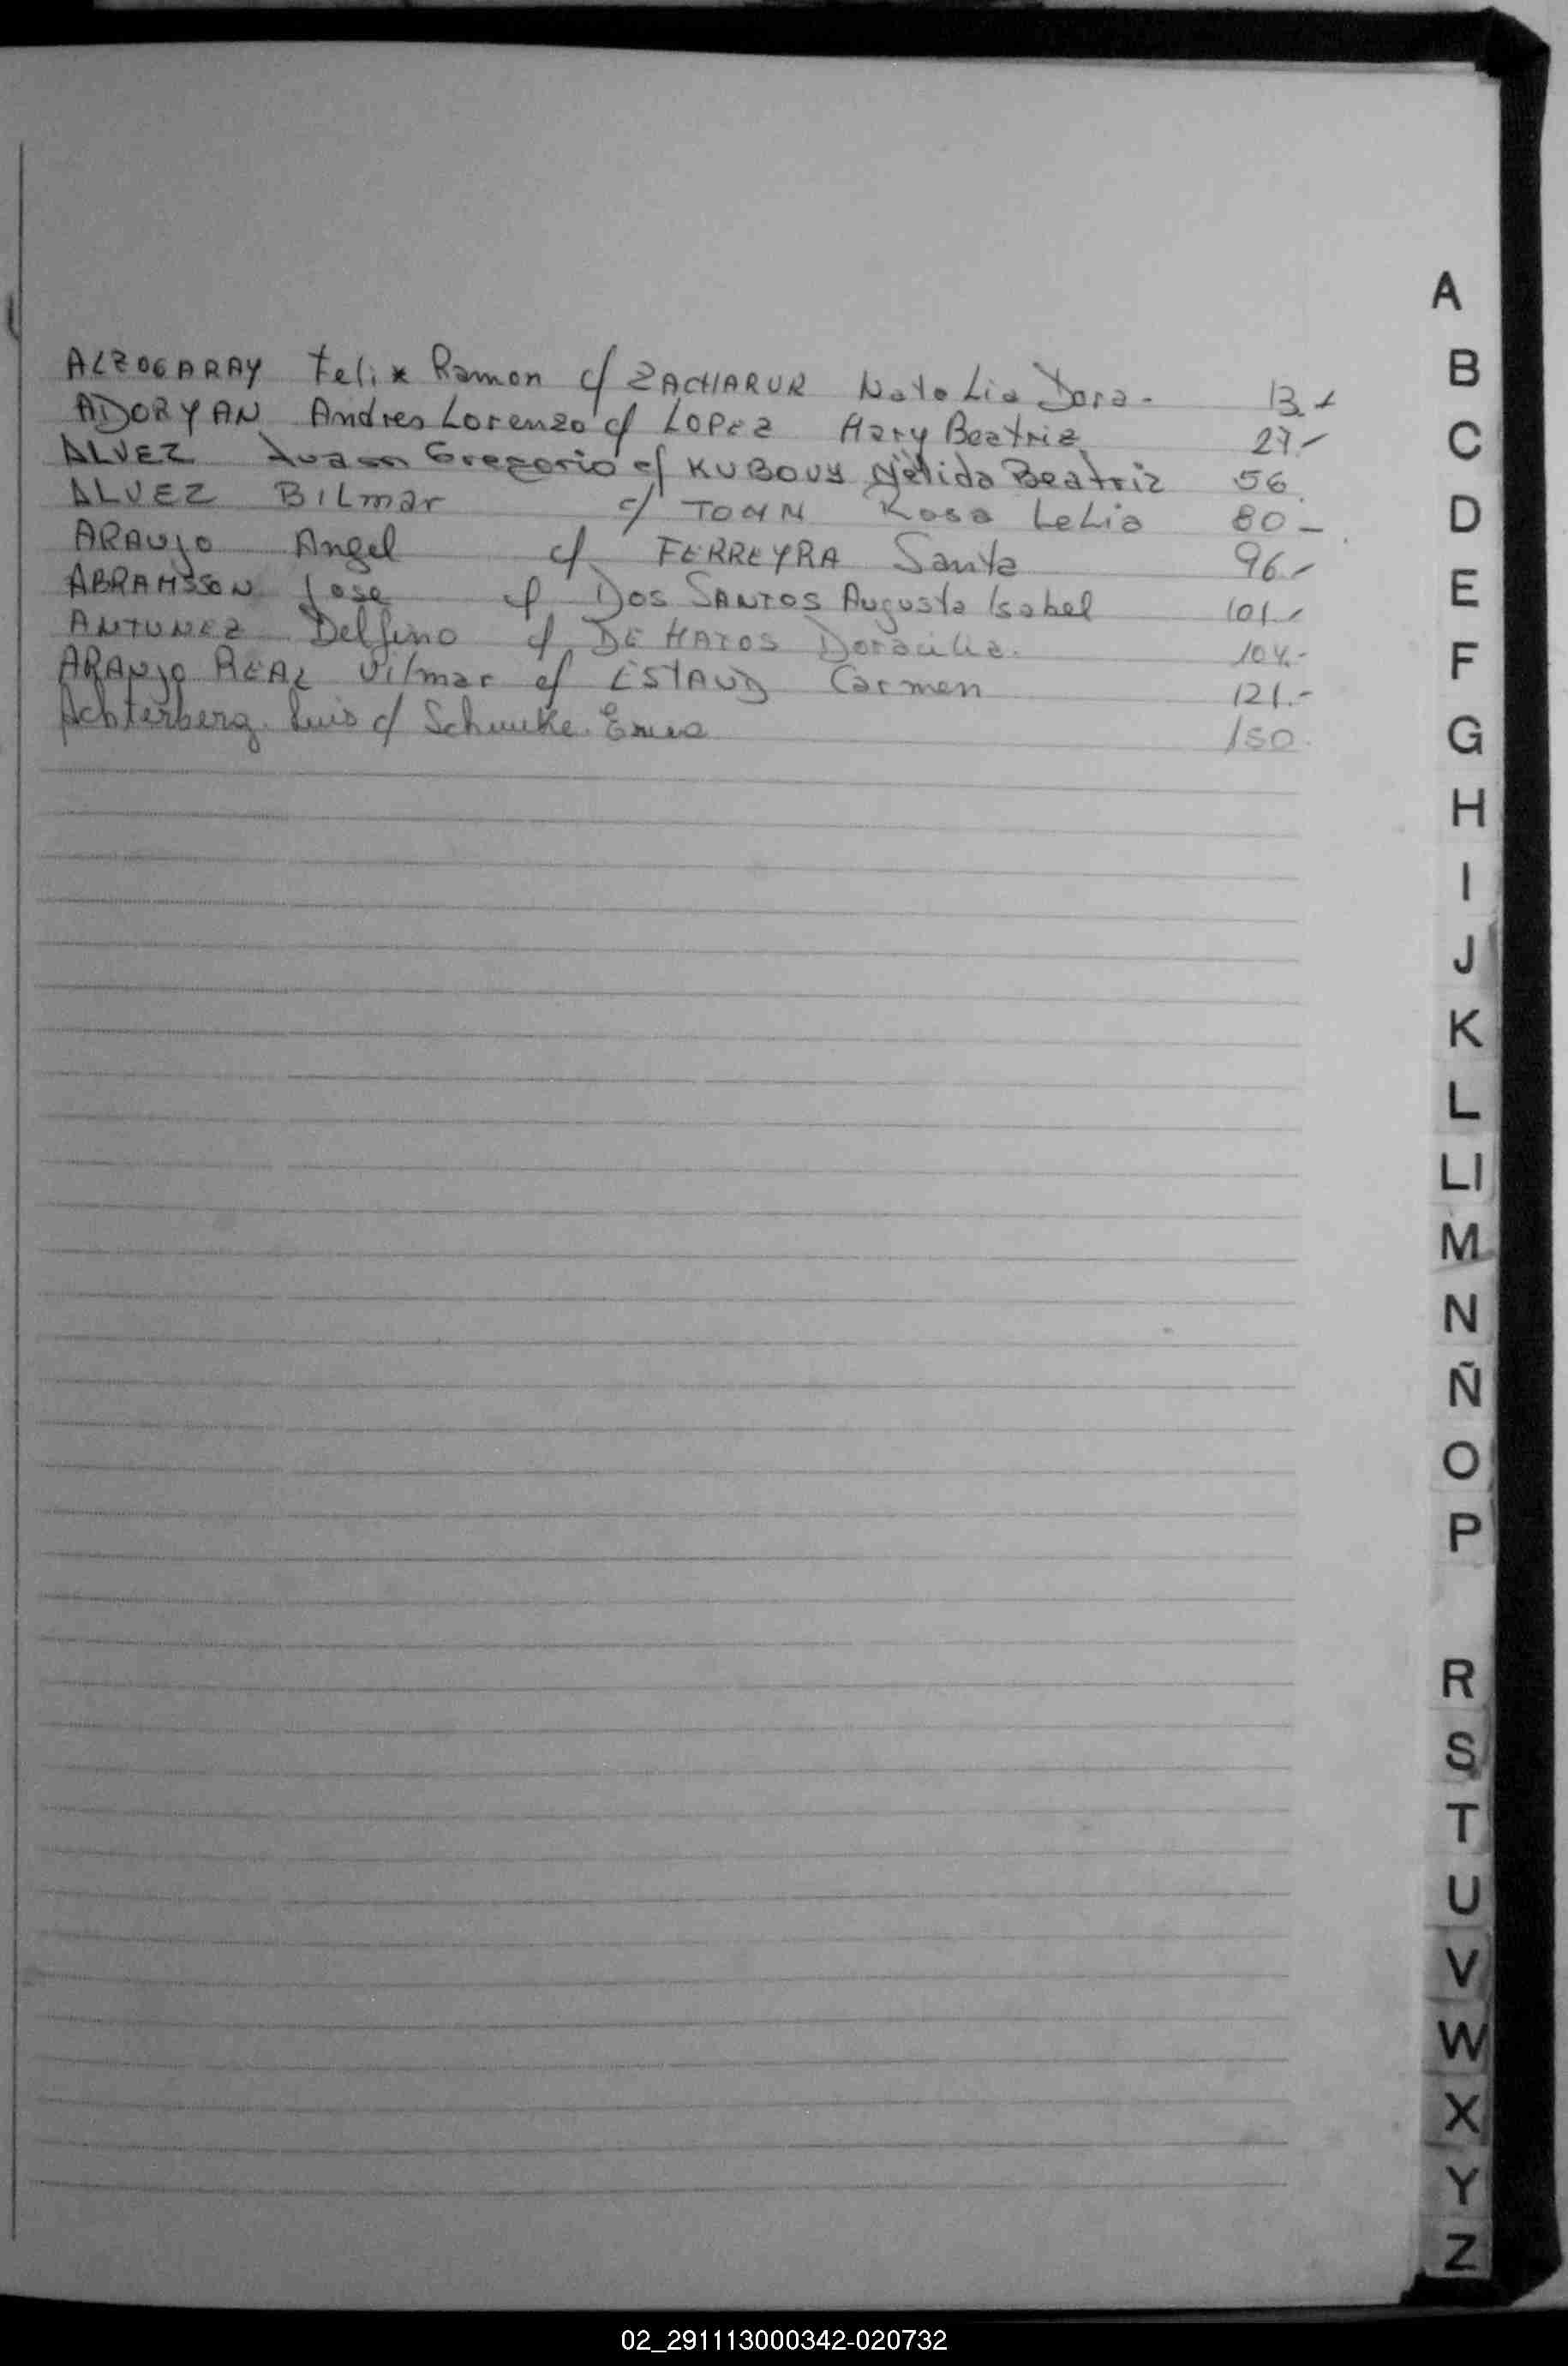 A
ALZOGARAY Felix Ramon c/ ZACHARUR Natalia Dora.- 13.-
B
ADORYAN Andres Lorenzo c/ LOPEZ Mary Beatriz 27.-
C
ALVEZ Juan Gregorio c/ KUBOUY Nélida Beatriz 56.
ALVEZ BILmar c/ TOMM Rosa LeLia 80-
D
ARAUJO Angel c/ FERREYRA Santa 96.-
ABRAMSSON Jose c/ DOS SANTOS Augusta Isabel 101.-
E
ANTUNEZ Delfino c/ DE MATOS 104.-
F
ARAUJO REAL Vilmar c/ Carmen 121.-
Achterberg. Luis c/ 150.
G
H
I
J
K
L
Ll
M
N
Ñ
O
P
R
S
T
U
V
W
X
Y
Z
02_291113000342-020732